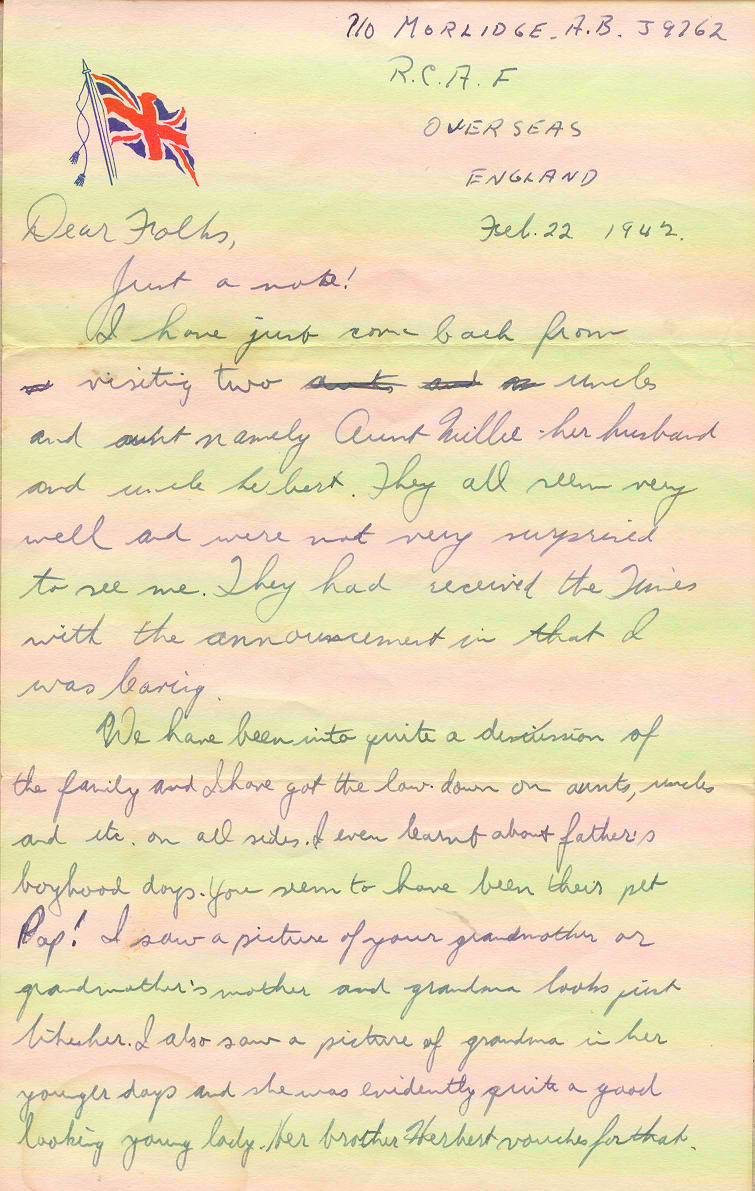 P/O MORLIDGE. A.B. J9762
R.C.A.F
OVERSEAS
ENGLAND
Feb. 22 1942.
Dear Folks,
Just a note!
I have just come back from
visiting two aunts and uncles
and aunt namely Aunt Millie - her husband
and uncle Herbert. They all seem very
well and were not very surprised
to see me. They had received the Times
with the announcement in that I
was leaving.
We have been into quite a discussion of
the family and I have got the low-down on aunts, uncles
and etc. on all sides. I even learnt about father's
boyhood days. You seem to have been their pet
Pop! I saw a picture of your grandmother or
grandmother's mother and grandma looks just
like her. I also saw a picture of grandma in her
younger days and she was evidently quite a good
looking young lady. Her brother Herbert vouches for that.